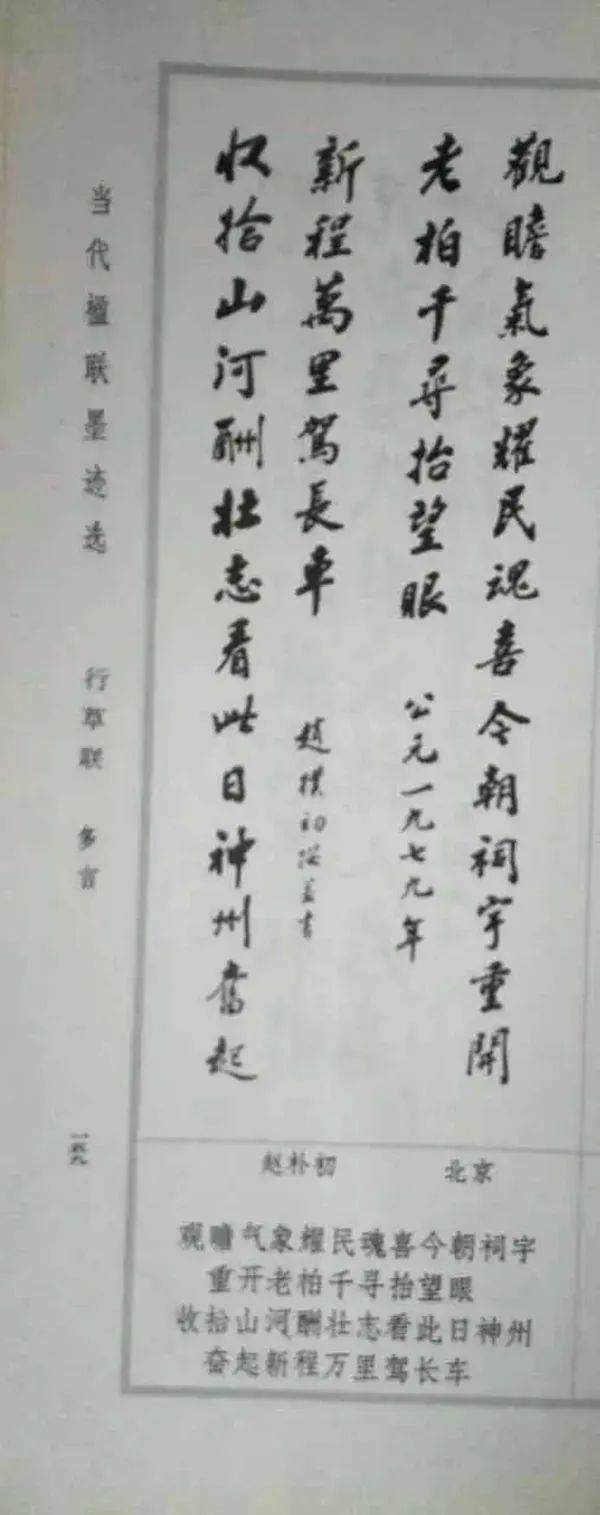 觀瞻氣象耀民魂喜今朝祠宇重開
老柏千尋抬望眼
公元一九七九年
收拾山河酬壯志看此日神州奮起
新程萬里駕長車
趙樸初撰並書
当代楹联墨迹选
行草联 多言
一六九
北京
赵朴初
观瞻气象耀民魂喜今朝祠宇
重开老柏千寻抬望眼
收拾山河酬壮志看此日神州
奋起新程万里驾长车